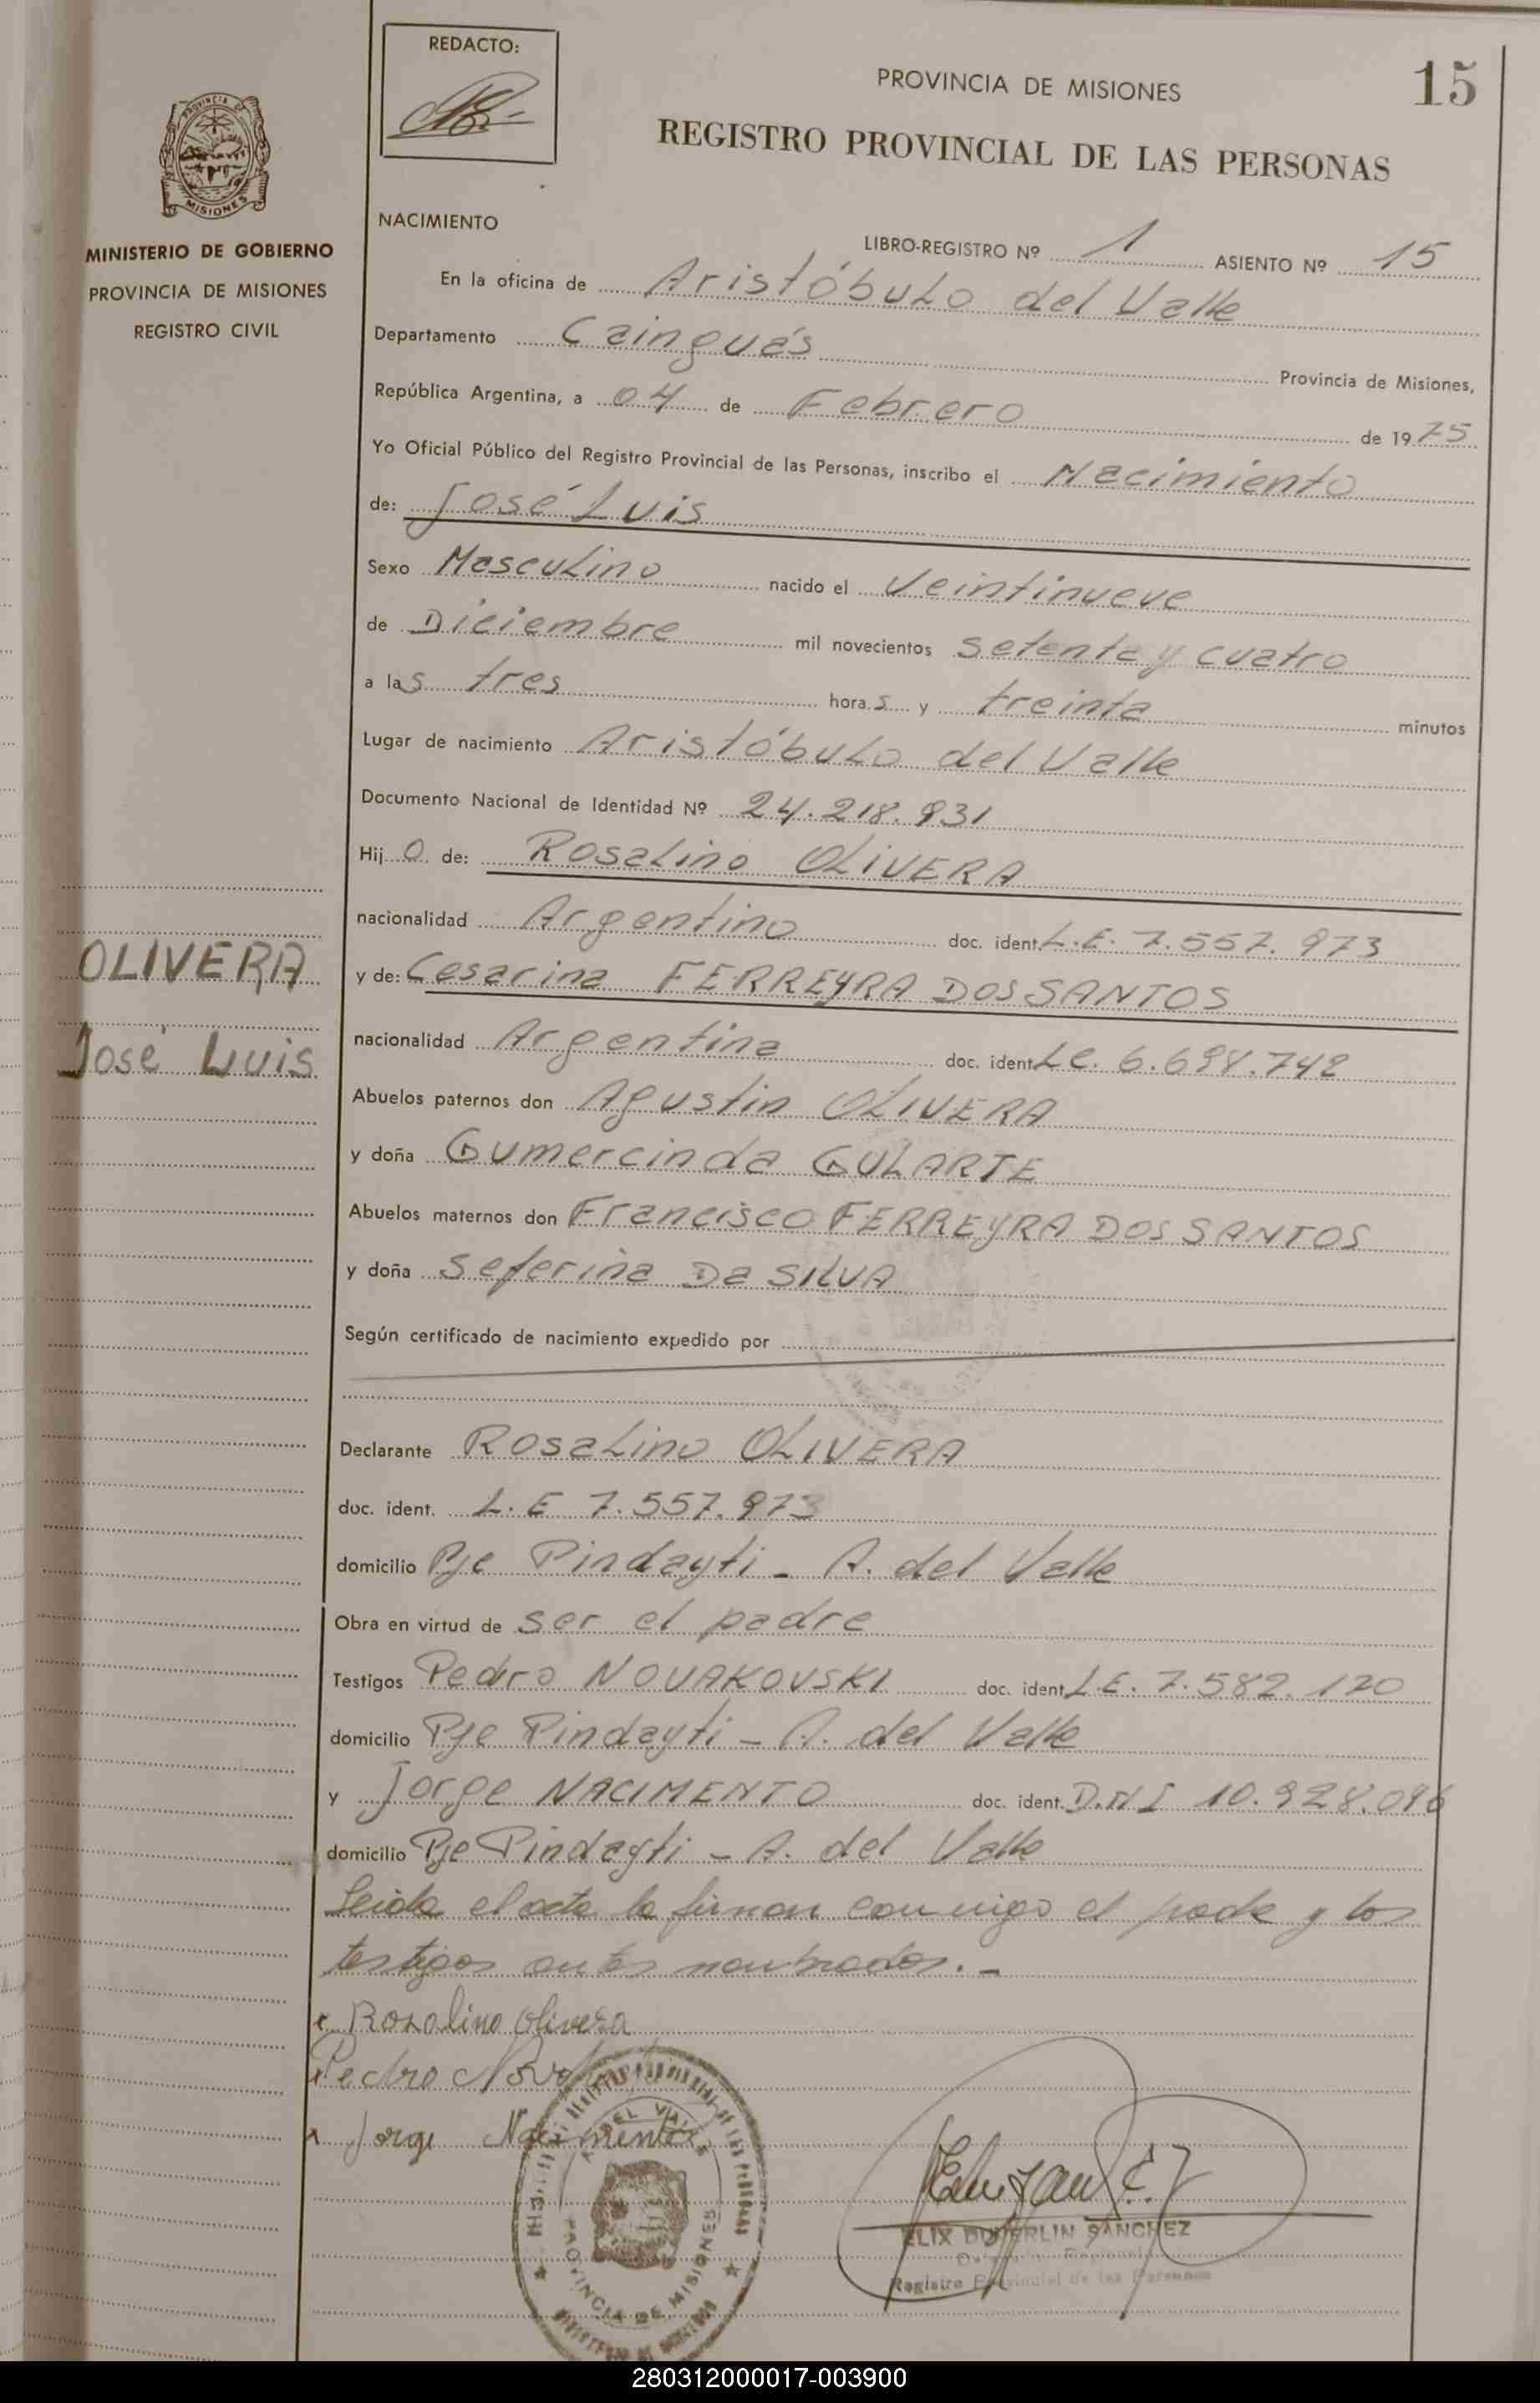 REDACTO:
15
PROVINCIA DE MISIONES
REGISTRO PROVINCIAL DE LAS PERSONAS
PROVINCIA DE
MISIONES
MINISTERIO DE GOBIERNO
PROVINCIA DE MISIONES
REGISTRO CIVIL
NACIMIENTO
LIBRO-REGISTRO Nº 1 ASIENTO Nº 15
En la oficina de Aristóbulo del Valle
Departamento Cainguás Provincia de Misiones,
República Argentina, a 04 de Febrero de 1975
Yo Oficial Público del Registro Provincial de las Personas, inscribo el Nacimiento
de: José Luis
Sexo Masculino nacido el Veintinueve
de Diciembre mil novecientos setenta y cuatro
a las tres horas y treinta minutos
Lugar de nacimiento Aristóbulo del Valle
Documento Nacional de Identidad Nº 24.218.931
Hijo de: Rosalino OLIVERA
nacionalidad Argentino doc. ident. L.E. 7.557.973
OLIVERA
y de: Cesarina FERREYRA DOS SANTOS
José Luis
nacionalidad Argentina doc. ident. L.C.
Abuelos paternos don Agustin OLIVERA
y doña Gumercinda GULARTE
Abuelos maternos don Francisco FERREYRA DOS SANTOS
y doña Seferina Da SILVA
Según certificado de nacimiento expedido por
Declarante Rosalino OLIVERA
doc. ident. L.E 7.557.973
domicilio Pje Pindayti - A. del Valle
Obra en virtud de ser el padre
Testigos Pedro NOVAKOVSKI doc. ident. L.E. 7.582.120
domicilio Pje Pindayti - A. del Valle
y Jorge NACIMENTO doc. ident. D.N.I 10.928.096
domicilio Pje Pindayti - A. del Valle
Leida el acta la firman conmigo el padre y los
testigos antes nombrados.-
x Rosalino Olivera
Pedro
x Jorge Nacimento
A. DEL VALLE
PROVINCIA DE MISIONES
SANCHEZ
Registro Provincial de las Personas
280312000017-003900